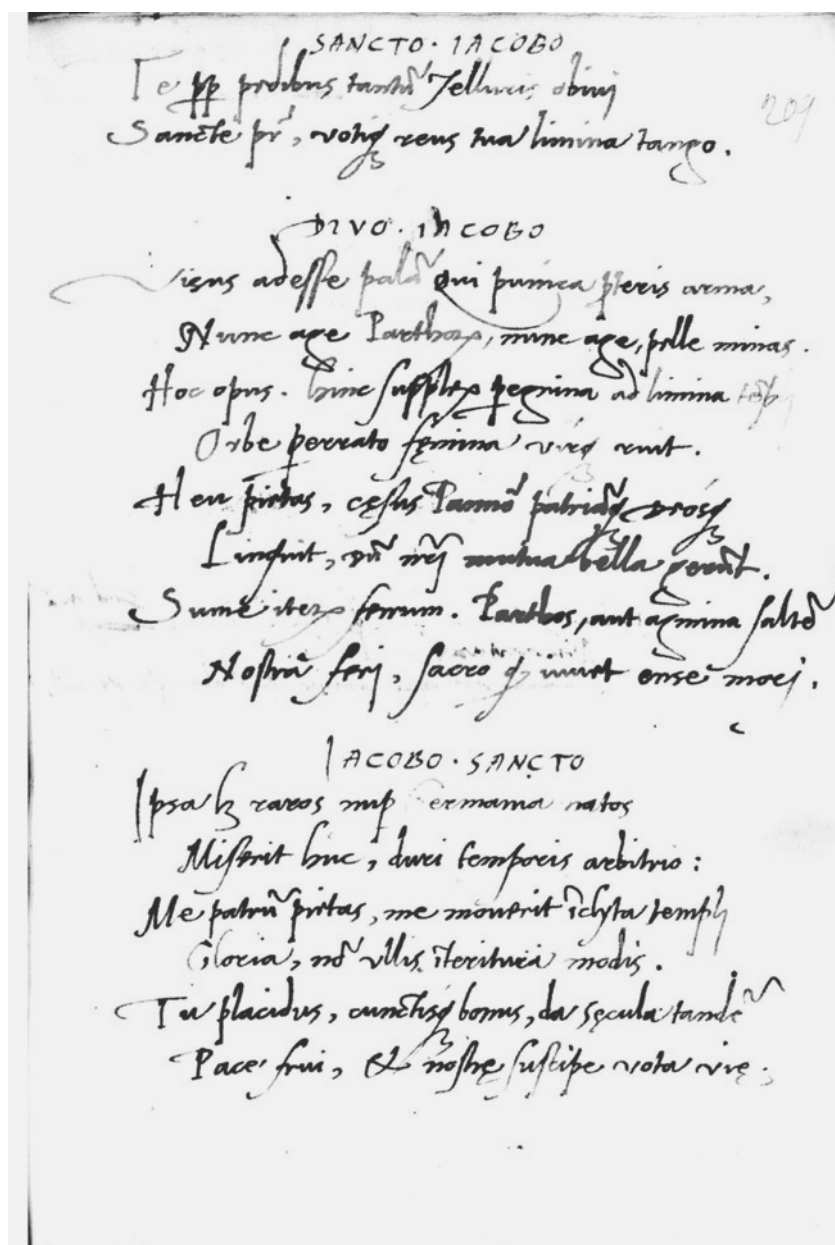 SANCTO · IACOBO
Te pp pedibus tantū Telluris obivi
209
Sancte pr̄, votiq; reus tua limina tango.
DIVO · IACOBO
Visus adesse palā qui punica pteris arma,
Nunc age Parthoꝝ, nunc age, pelle minas.
Hoc opus. hinc supplex pegrina ad limina
Orbe perrato fęmina virq; ruit.
Heu pietas, cęsus Panno patriāq; deosq;
Linquit, dū nr̄i mutua bella gerūt.
Sume iteꝝ ferrum. Parthos, aut agmina saltē
Nostra feri, sacro q; iuvet ense mori.
IACOBO · SANCTO
Ipsa lꝫ raros nup Germania natos
Miserit huc, duri temporis arbitrio:
Me patrū pietas, me moverit īclyta templi
Gloria, nō ullis īteritura modis.
Tu placidus, cunctisq; bonus, da sęcula tandē
Pace frui, & nostrę suscipe vota vię.